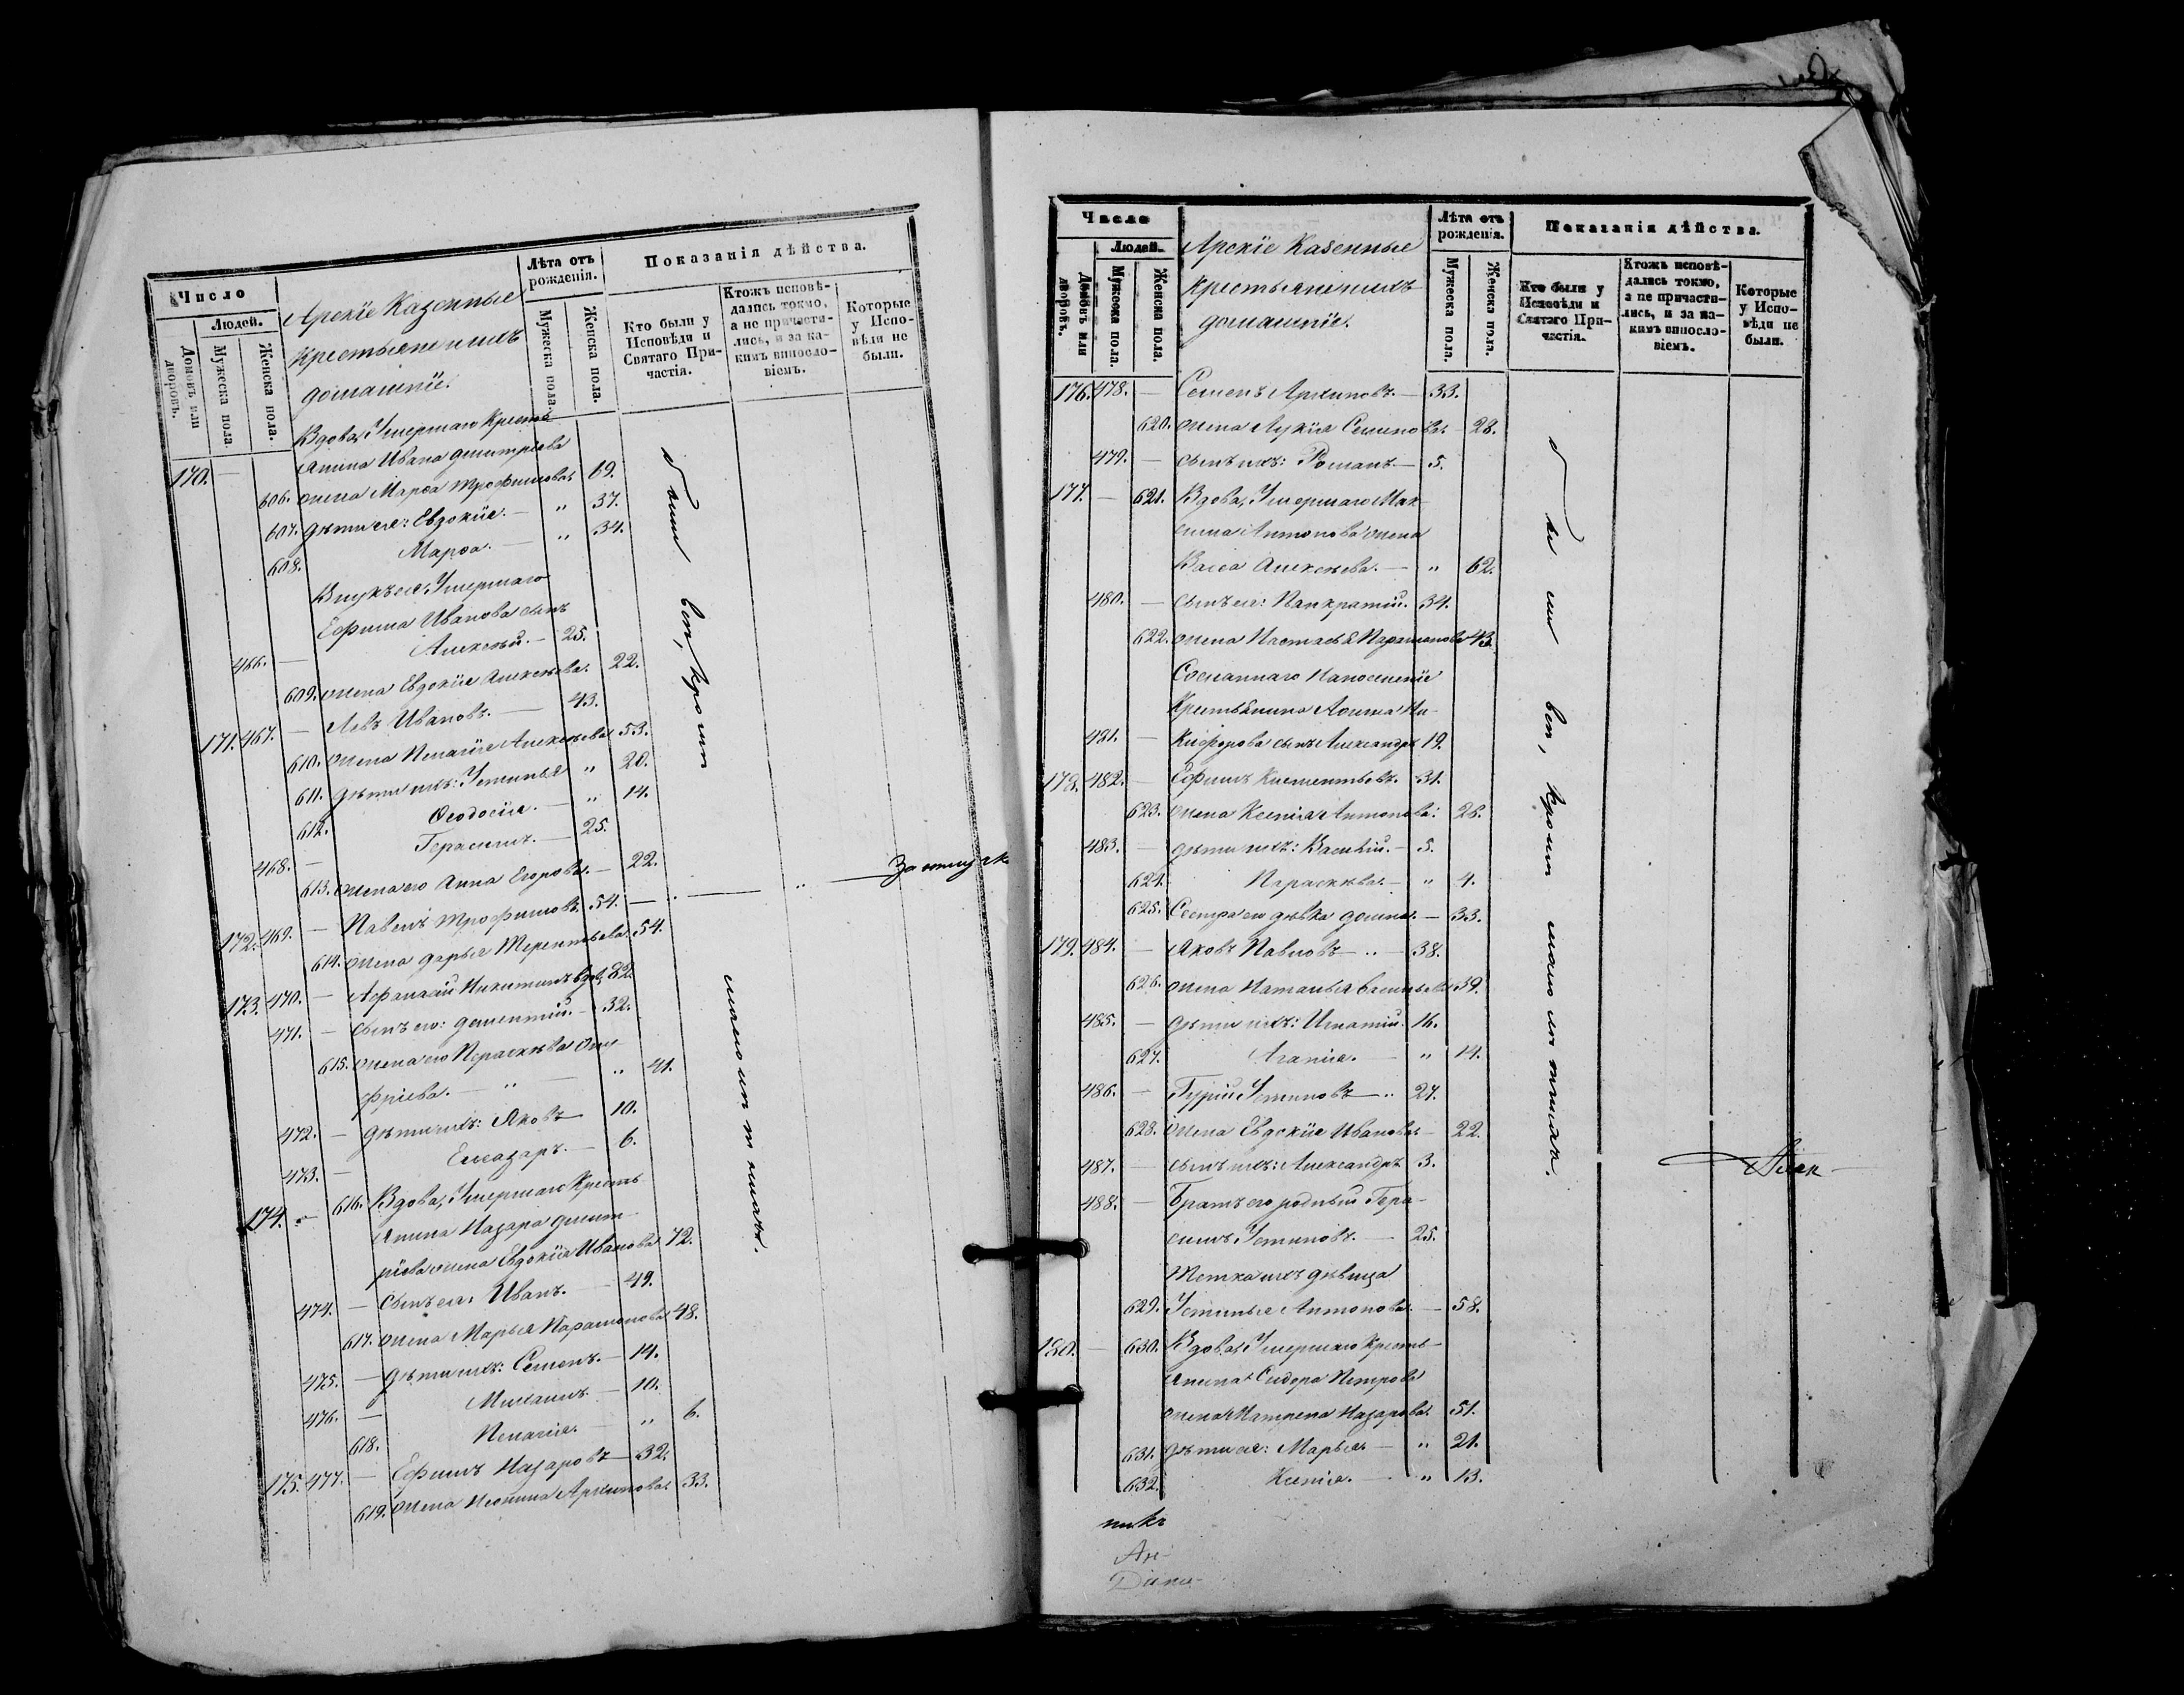 Число
Людей.
Домовъ или дворовъ.
Мужеска пола
Женска пола.
Арскіе Казенные
Крестьяне и ихъ
домашніе.
Лѣта отъ рожденія.
Мужеска пола.
Женска пола.
Показанія дѣйства.
Кто были у Исповѣди и Святаго Причастія.
Ктожъ исповѣдались токмо, а не причастились, и за какимъ винословіемъ.
Которые у Исповѣди не были.
170. — Вдова, Умершаго Кресть
янина Ивана Дмитріева
606. жена Марѳа Трофимова. 69.
607. дѣти ея: Евдокія. — „ 37.
608. Марѳа. — „ 34.
Внукъ ея, Умершаго
Ефима Иванова сынъ
466. — Алексѣй. — 25.
609. жена Евдокія Алексѣева. 22.
171. 467. — Левъ Ивановъ. — 43.
610. жена Пелагія Алексѣева 53.
611. дѣти ихъ: Устинья „ 20.
612. Ѳеодосія. — „ 14.
468. — Герасимъ. — 25.
613. жена его Анна Егорова. — 22.
172. 469. — Павелъ Трофимовъ 54. — „ — За отлуч
614. жена Дарья Терентьева. 54.
173. 470. — Афанасій Никитинъ вдов. 82.
471. — сынъ его: Дементій. — 32.
615. жена его Параскѣва Ону
фріева. — „ — „ 41.
472. — дѣти ихъ: Яковъ 10.
473. — Елеазаръ. — 6.
174. — 616. Вдова, Умершаго Кресть
янина Назара Дмит
ріева жена Евдокія Иванова 72.
474. — сынъ ея: Иванъ. — 49.
617. жена Марья Парамонова 48.
475. — дѣти ихъ: Семенъ. — 14.
476. — Михаилъ — 10.
618. Пелагія. — „ 6.
175. 477. — Ефимъ Назаровъ — 32.
619. жена Неонила Архипова. 33.
были всѣ, кромѣ
малолѣтнихъ.
Число
Людей.
Домовъ или дворовъ.
Мужеска пола.
Женска пола.
Арскіе Казенные
крестьяне и ихъ
домашніе.
Лѣта отъ рожденія.
Мужеска пола.
Женска пола.
Показанія дѣйства.
Кто были у Исповѣди и Святаго Причастія.
Ктожъ исповѣдались токмо, а не причастились, и за какимъ винословіемъ.
Которые у Исповѣди не были.
176. 478. — Семенъ Архиповъ. — 33.
620. жена Лукія Семенова. — 28.
479. — сынъ ихъ: Романъ. — 5.
177. — 621. Вдова, Умершаго Мак
сима Антонова жена
Васса Алексѣева. — „ 62.
480. — сынъ ея: Панкратій. 34.
622. жена Настасья Парамонова 43.
Сосланнаго На поселеніе
Крестьянина Ни-
481. — кифорова сынъ Александръ 19.
178. 482. — Ефимъ Климентьевъ. 31.
623. жена Ксенія Антонова. 28.
483. — дѣти ихъ: Василій. — 5.
624. Параскѣва. — „ 4.
625. Сестра его дѣвка Домна. — 33.
179. 484. — Яковъ Павловъ — „ — 38.
626. жена Наталья Васильева 39.
485. — дѣти ихъ: Игнатій. 16.
627. Агапія. — „ 14.
486. — Гурій Устиновъ — „ 27.
628. жена Евдокія Иванова. — 22.
487. — сынъ ихъ: Александръ 3.
488. — Братъ его родный Гера-
симъ Устиновъ. — 25.
Тетка ихъ дѣвица
629. Устинья Антонова. — 58.
180. — 630. Вдова, Умершаго Кресть-
янина Сидора Петрова
жена Матрена Назарова. 51.
631. дѣти ея: Марья. — „ 21.
632. Ксенія. — „ 13.
были всѣ, кромѣ малолѣтнихъ.